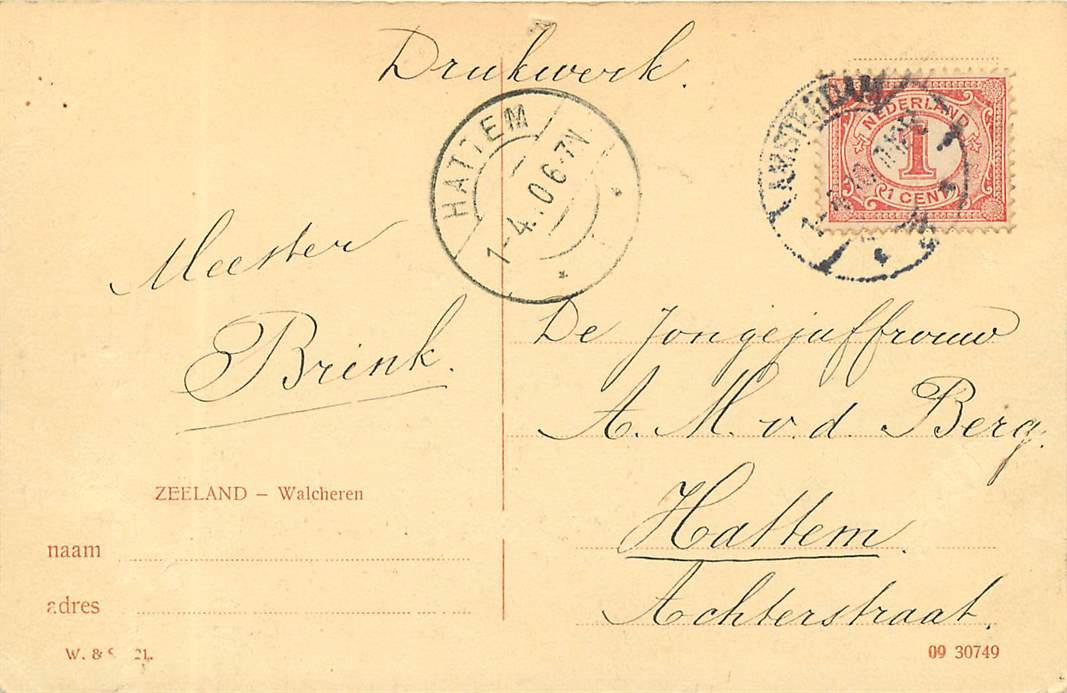 Drukwerk.
HATTEM
1-4.0 6-7N
AMSTERDAM
NEDERLAND
1
1 CENT
Meester
Brink.
De Jongejuffrouw
A. M. v. d. Berg.
Hattem.
Achterstraat.
ZEELAND – Walcheren
naam
adres
W. & S. 21.
09 30749